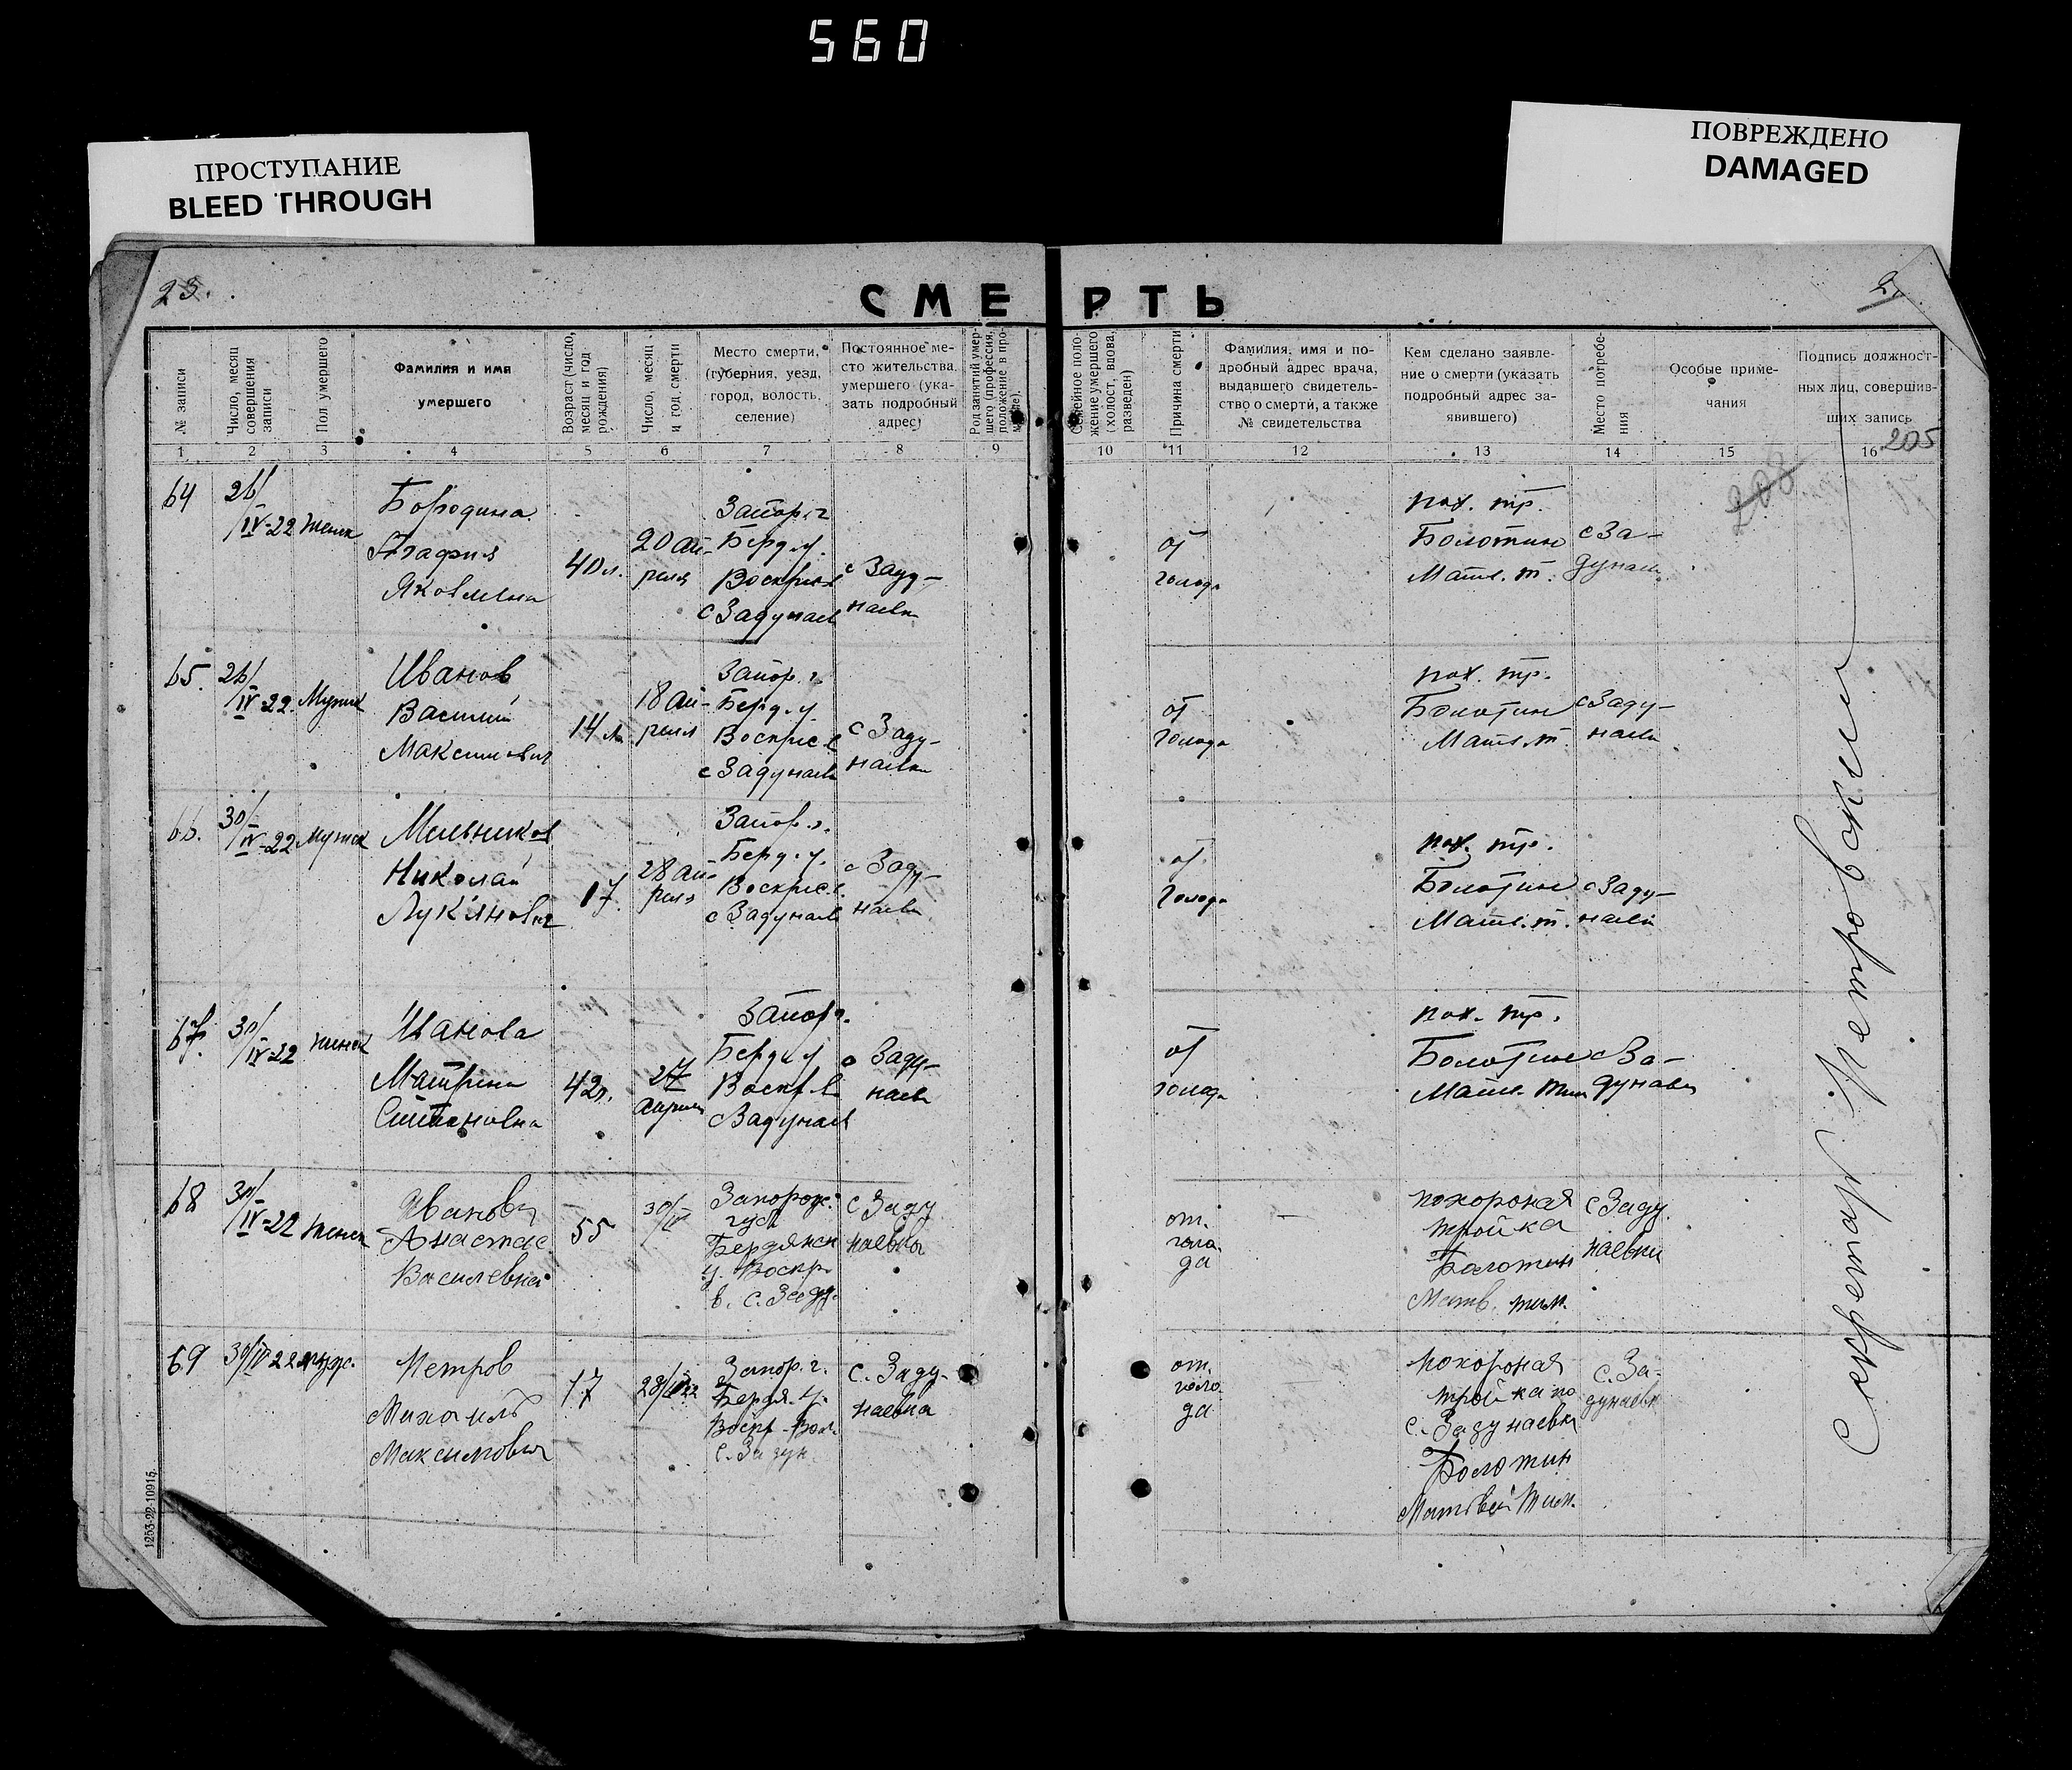 560
ПРОСТУПАНИЕ
BLEED THROUGH
ПОВРЕЖДЕНО
DAMAGED
23.
СМЕРТЬ
№ записи
Число, месяц совершения записи
Пол умершего
Фамилия и имя
умершего
Возраст (число, месяц и год рождения)
Число, месяц и год смерти
Место смерти,
(губерния, уезд,
город, волость,
селение)
Постоянное ме-
сто жительства
умершего (ука-
зать подробный
адрес)
Род занятий умер-
шего (профессия,
положение в про-
Семейное поло-
жение умершего
(холост, вдова,
разведен)
Причина смерти
Фамилия, имя и по-
дробный адрес врача,
выдавшего свидетель-
ство о смерти, а также
№ свидетельства
Кем сделано заявле-
ние о смерти (указать
подробный адрес за-
явившего)
Место погребе-
ния
Особые приме-
чания
Подпись должност-
ных лиц, совершив-
ших запись
205
1 2 3 4 5 6 7 8 9 10 11 12 13 14 15 16
208
64
26/IV-22
Женск
Бородина
Агафия
Яковлевна
40 л.
20 ап-
реля
Запор. г
Берд. у.
Воскрес в
с Задунаев
с Заду-
наевк
от
голода
пох. тр.
Болотин
Матв. т.
с За-
дунаев
65.
26/IV-22.
Мужск
Иванов
Василий
Максимович
14 л.
18 ап-
реля
Запор. г.
Берд. у
Воскрес. в
с Задунаев
с Заду-
наевк
от
голода
пох. тр.
Болотин
Матв. т.
с Заду-
наевк
66.
30/IV-22
Мужск
Мельников
Николай
Лукянович
17.
28 ап-
реля
Запор. г.
Берд. у.
Воскрес. в.
с Задунаев
с Заду-
наевк
от
голода
пох. тр.
Болотин
Матв. т.
с Заду-
наевк
67.
30/IV-22
женск
Иванова
Матрена
Степановна
42 л.
27
апреля
Запор г.
Берд. у
Воскр. в
с Задунаев
с Заду-
наевк
от
голода
пох. тр.
Болотин
Матв. Тим
с За-
дунаевк
68
30/IV-22
Женск
Иванова
Анастас.
Василевна
55
30/IV
Запорож.
губ
Бердянск
у. Воскр.
в. с. Заду.
с Заду
наевка
от.
голо-
да
похороная
тройка
Болотин
Матв. тим.
с Заду.
наевки
69
30/IV 22
муж.
Петров
Михаилъ
Максимович
17
28/IV 22
Запор. г.
Бердя. у.
Воскр. Вол.
с. Задун.
с. Заду-
наевка
от.
голо-
да
похороная
тройка по
с. Задунаевка
Болотин
Матвей Тим.
с. За-
дунаевк
Секретарь Петровским
1253-22-10915.